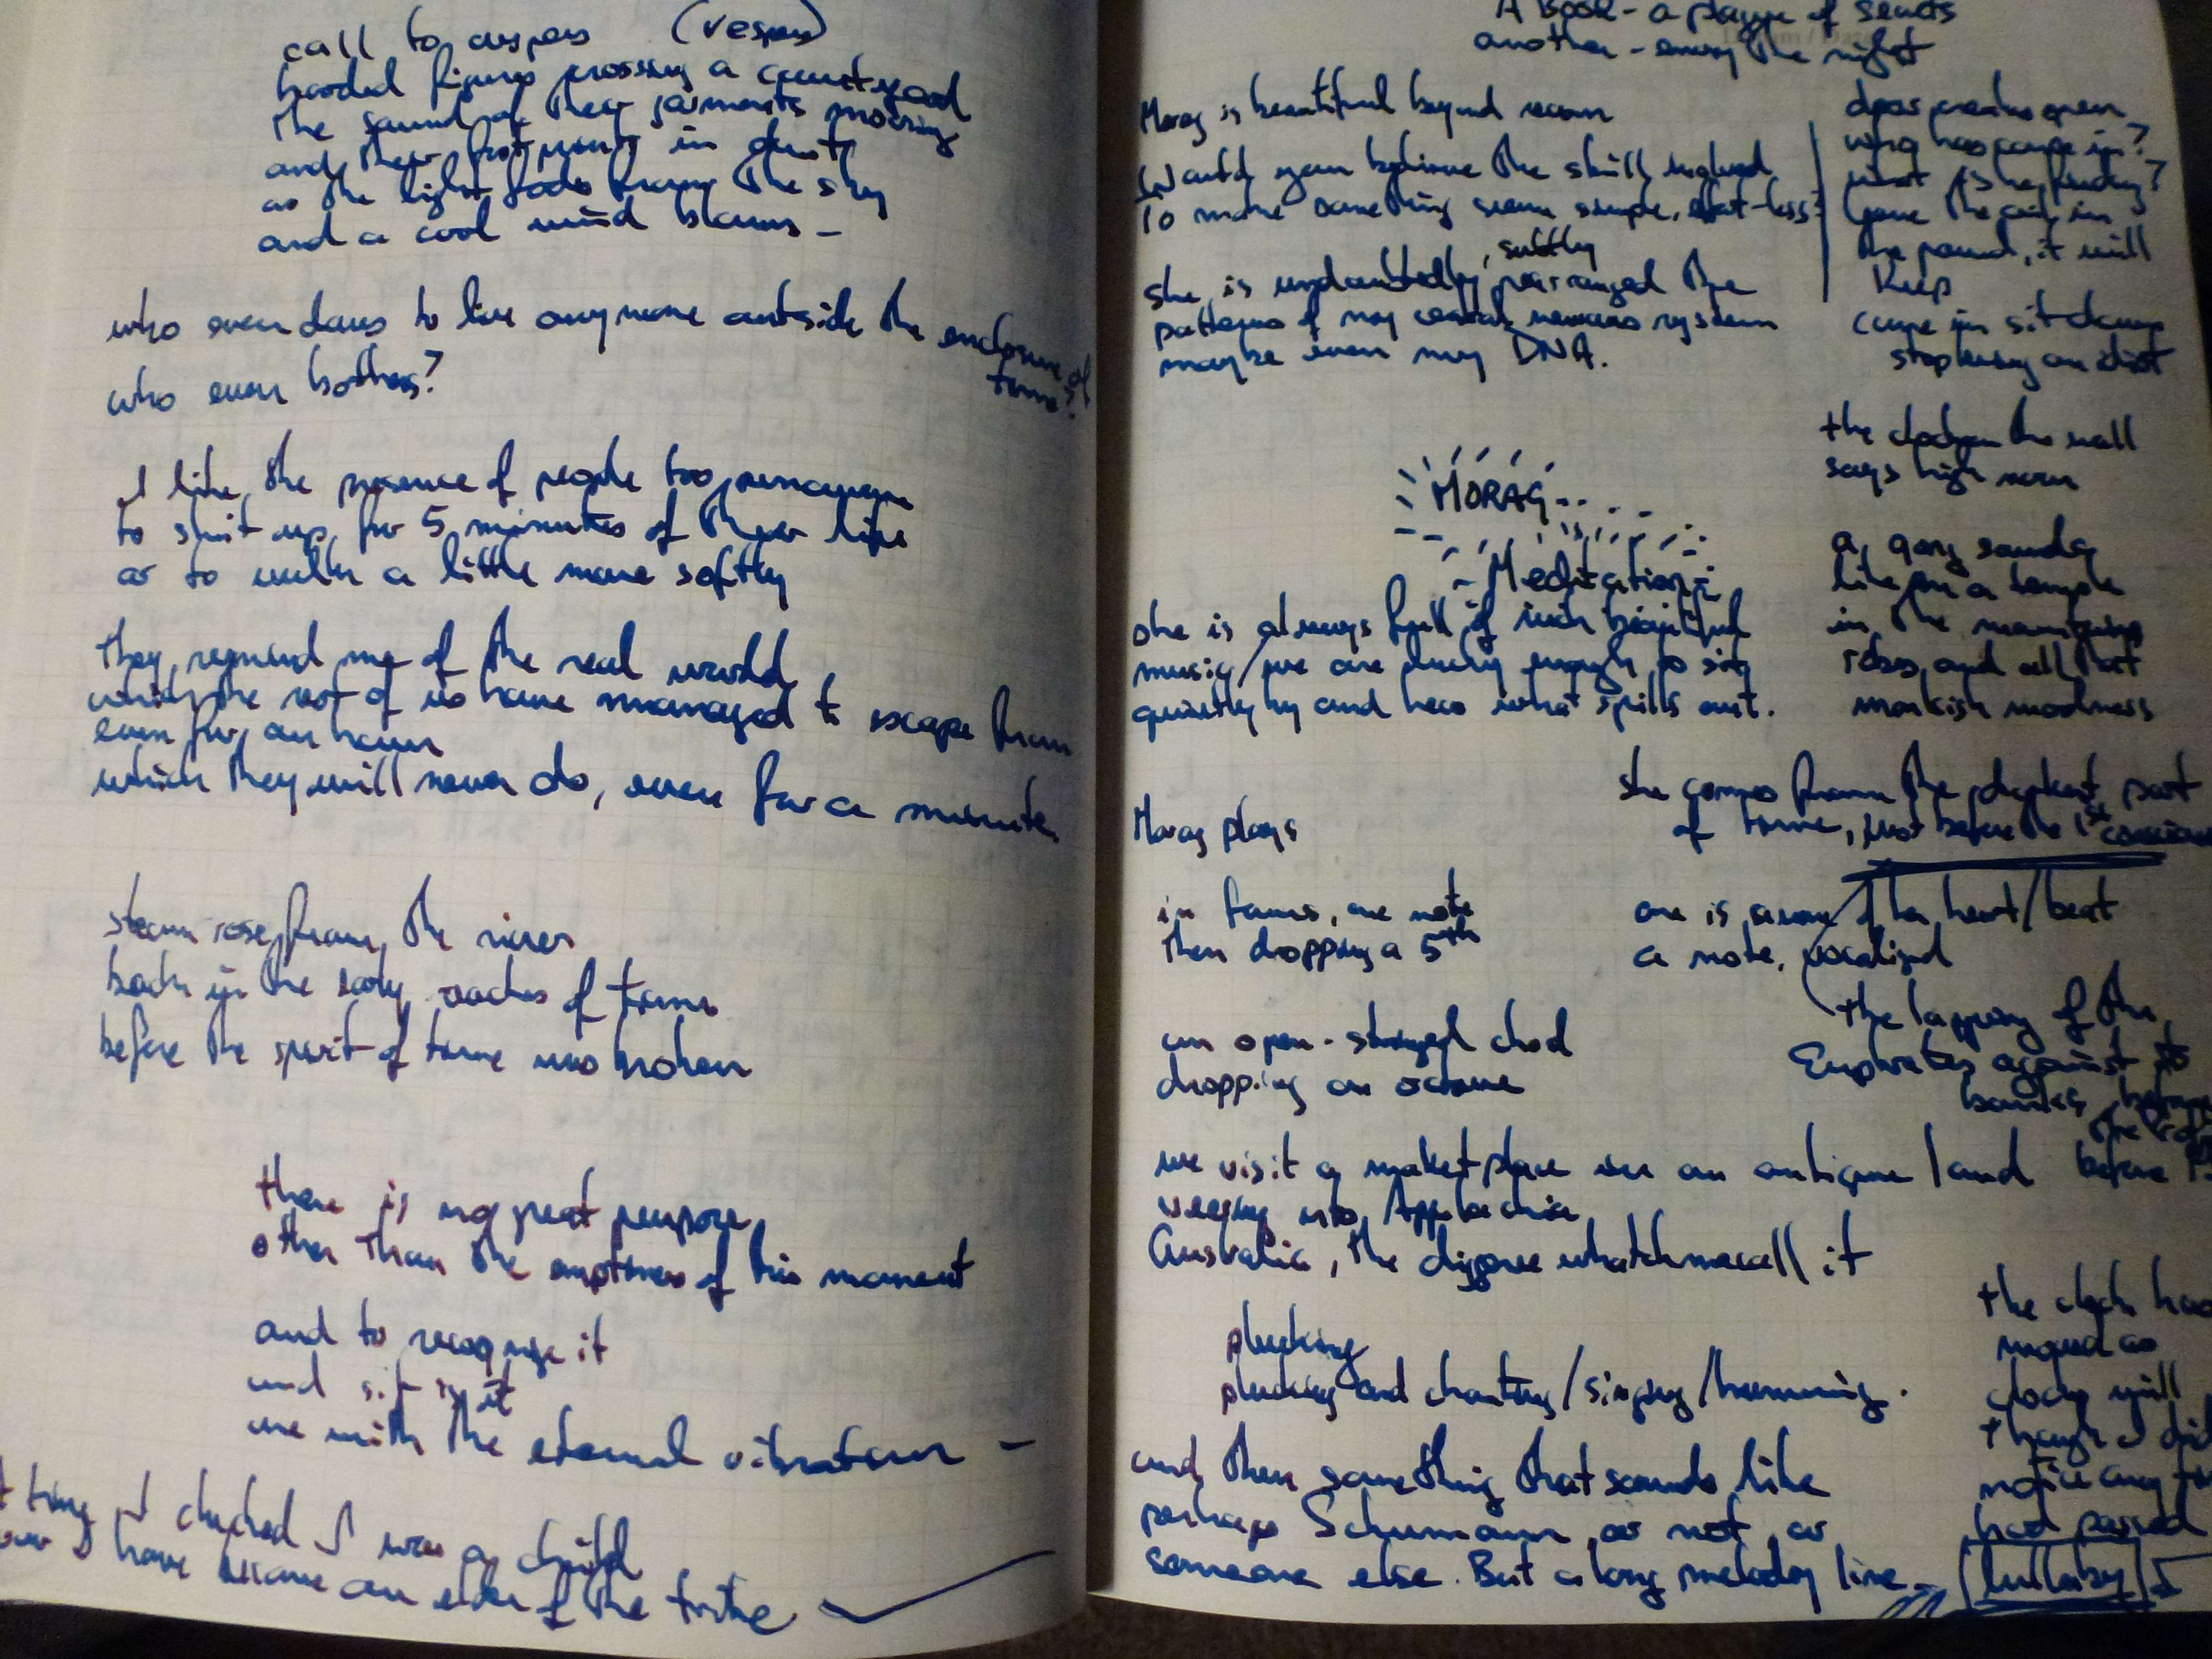 call to vespers (vespers)
hooded figures crossing a courtyard
the sound of their garments moving
and their footprints in dust
as the light fades from the sky
and a cool wind blows –
who even dares to live anymore outside the enclosure of
time?
who even bothers?
I like the presence of people too
to shut up for 5 minutes of their life
or to walk a little more softly
they remind me of the real world
which the rest of us have managed to escape from
even for an hour
which they will never do, even for a minute.
steam rose from the river
back in the early reaches of time
before the spirit of time was broken
there is no great purpose
other than the emptiness of this moment
and to recognise it
and sit in it
one with the eternal vibration –
time I checked I was a child
I have become an elder of the tribe
A Book – a plague of
another – the night
Morag is beautiful beyond
Would you believe the skill
to make something seem simple, effort-less?
, subtly
she is undoubtedly, rearranged the
patterns of my nervous system
maybe even my DNA.
MORAG...
Meditations
she is always full of such beautiful
music/we are lucky enough to sit
quietly by and hear what spills out.
Morag plays
in fours, one note
then dropping a 5th
an open-stringed chord
dropping an octave
we visit a market place in an antique land
veering into Appalachia
Australia, the digeree whatchmecall it
plucking
plucking and chanting/singing/humming.
and then something that sounds like
perhaps Schumann, or not, or
someone else. But a long melody line –
door creaks open
who has come in?
what is he
the
the pound, it will
keep
come in sit down
stop being an idiot
the clock on the wall
says high noon
a gong sounds
like in a temple
in the mountains
robes and all that
monkish
she comes from the darkest part
of time, just before the 1st
one is aware of her heart/beat
a note, vocalised
the lapping of the
Euphrates against its
banks, before
the
before
the clock has
moved as
clocks will
though I did
notice any
had passed
(lullaby)